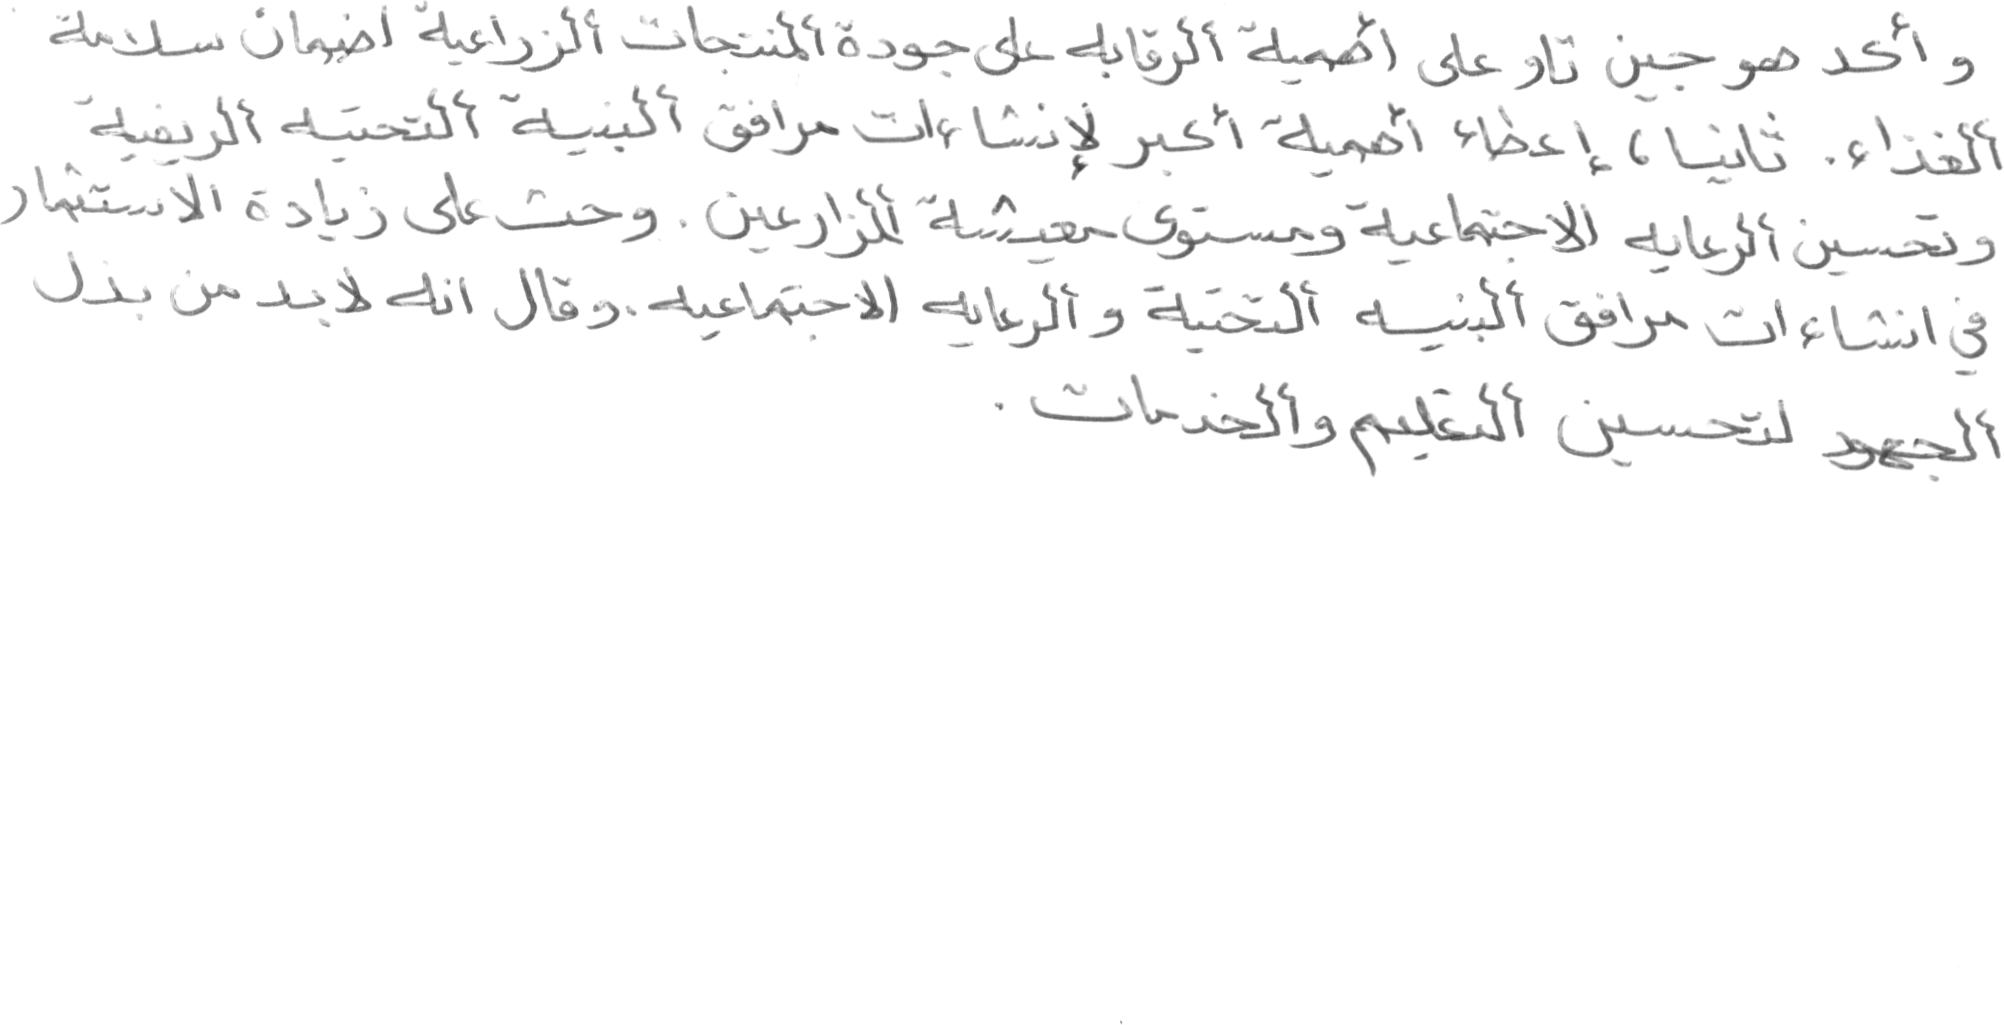 و أكد هو جين تاو على أهمية ألرقابه على جودة ألمنتجات ألزراعية لضمان سلامة
ألغذاء. ثانيا، إعطاء أهمية أكبر لإنشاءات مرافق ألبنية ألتحتيه ألريفية
وتحسين ألرعايه الاجتماعية ومستوى معيشة ألمزارعين. وحث على زيادة الاستثمار
في انشاءات مرافق ألبنيه ألتحتية و ألرعايه الاجتماعيه. وقال انه لابد من بذل
ألجهود لتحسين ألتعليم وألخدمات.